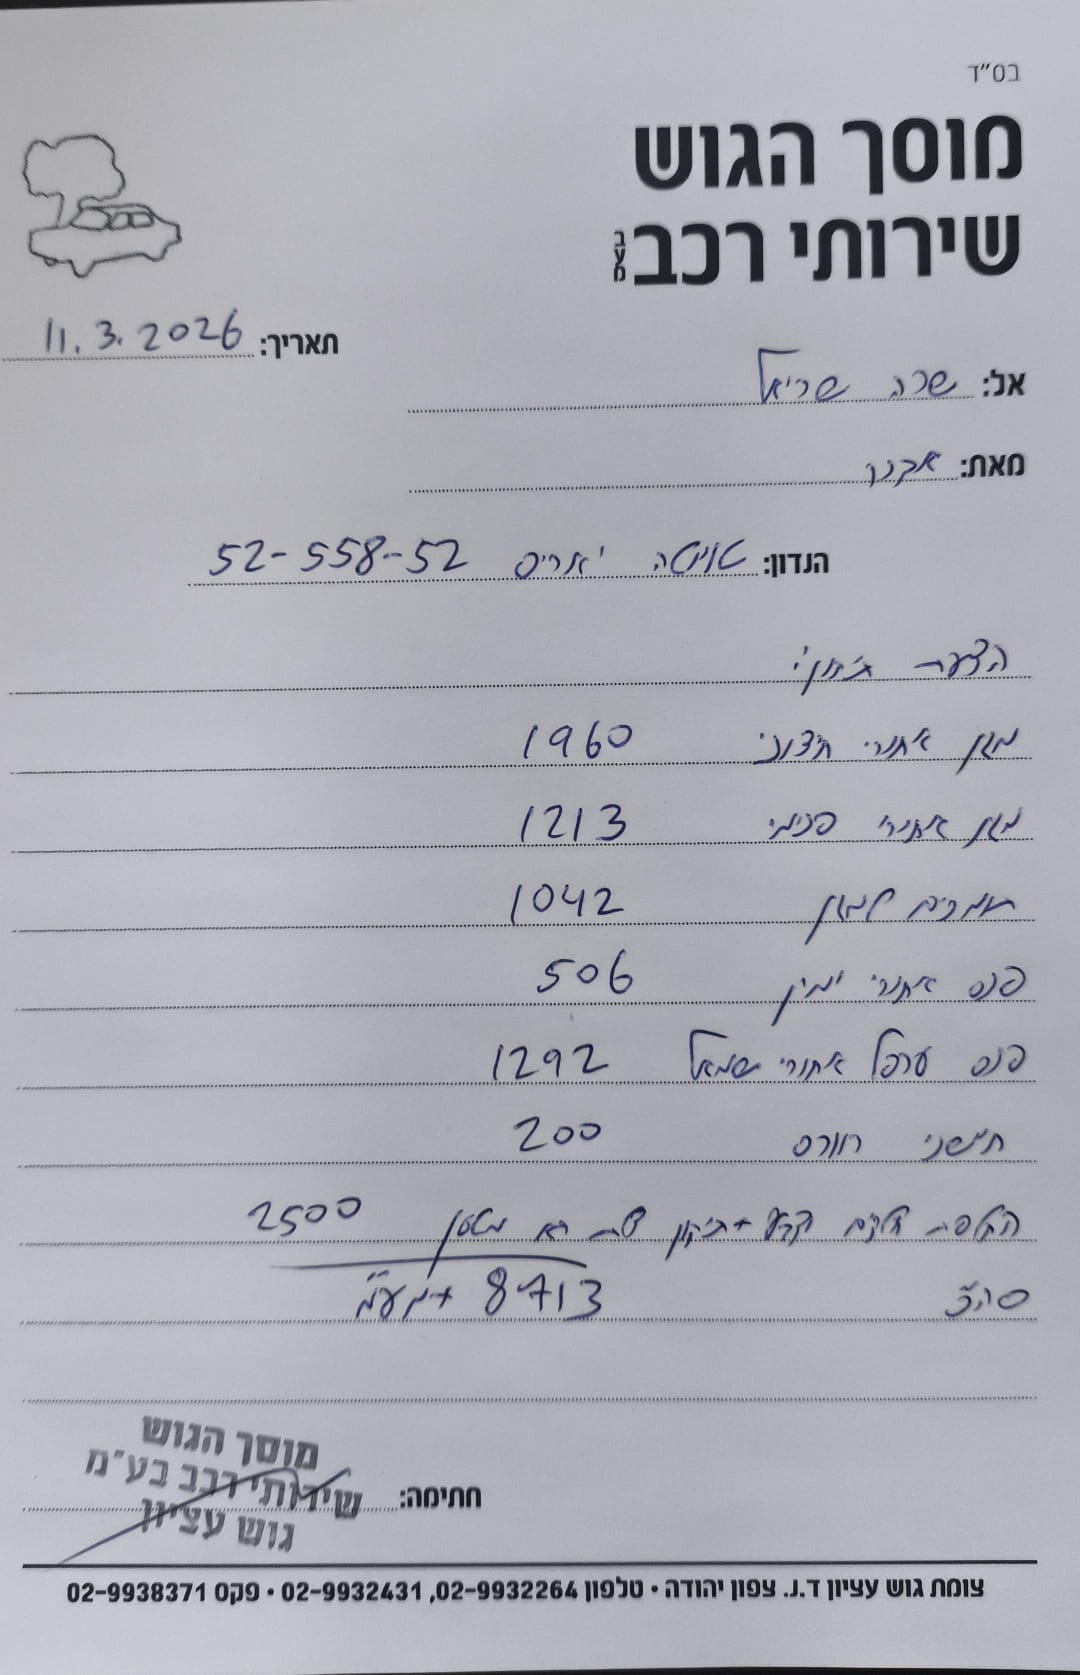 בס״ד
מוסך הגוש
שירותי רכב בעמ
תאריך: 11.3.2026
אל: שרה שריאל
מאת: אבנר
הנדון: טויוטה יאריס 52-558-52
הצעת תיקון:
מגן אחורי חיצוני 1960
מגן אחורי פנימי 1213
תומכים למגן 1042
פנס אחורי ימין 506
פנס ערפל אחורי שמאל 1292
חיישני רוורס 200
החלפת חלקים צבע + תיקון תא מטען 2500
סה״כ 8713 + מע״מ
חתימה:
מוסך הגוש
שירותי רכב בע״מ
גוש עציון
צומת גוש עציון ד.נ. צפון יהודה • טלפון 02-9932264, 02-9932431 • פקס 02-9938371